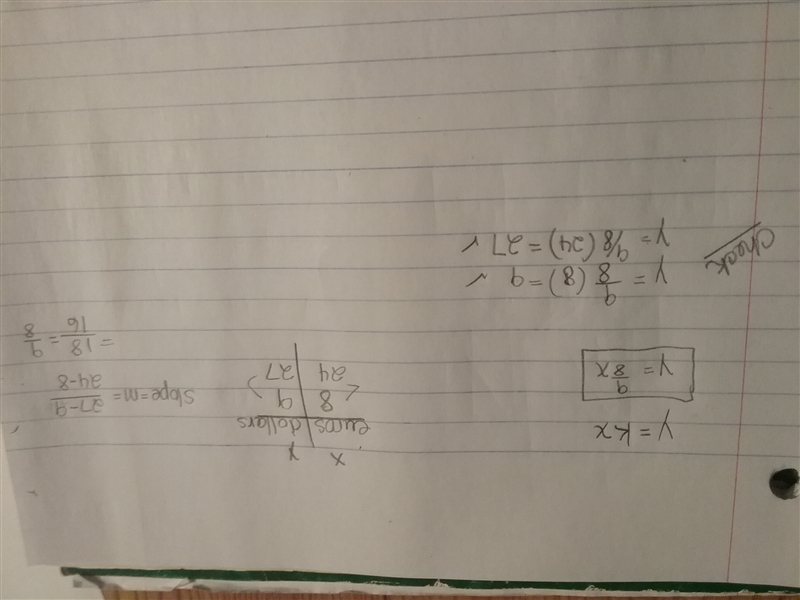 y = kx
y = 9/8 x
x y
euros dollars
8 9
24 27
slope = m = 27-9/24-8
= 18/16 = 9/8
Check
y = 9/8 (8) = 9 ✓
y = 9/8 (24) = 27 ✓